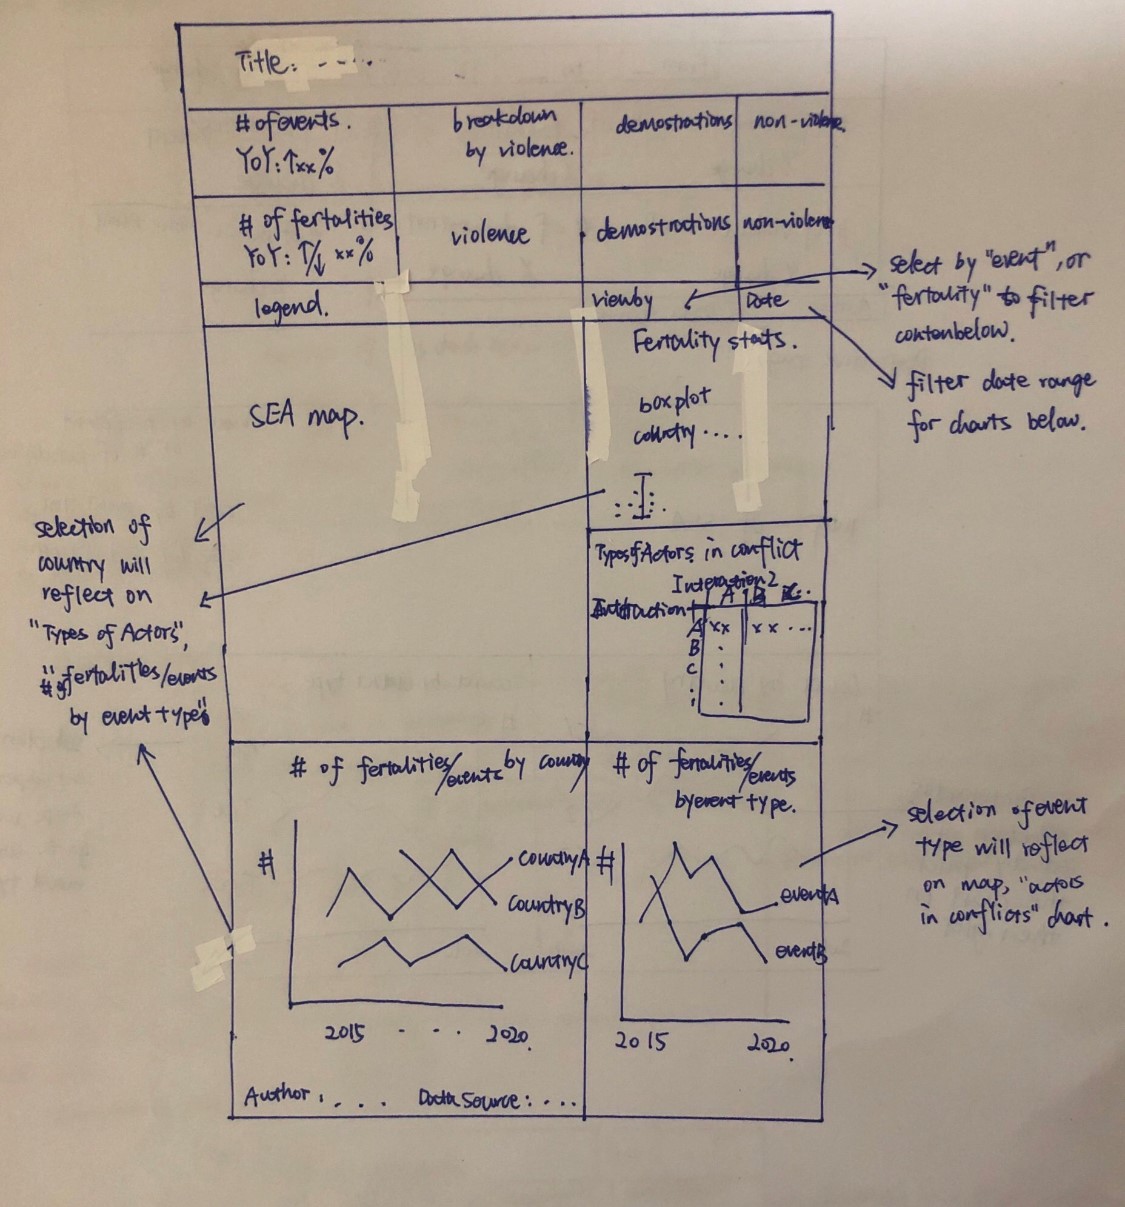 Title: - - - -
# of events.
YoY: ↑xx%
breakdown
by violence.
demostrations
non-violence
# of fertalities
YoY: ↑/↓ xx%
violence
demostrations
non-violence
legend.
viewby
Date
select by "event", or
"fertality" to filter
contenbelow.
filter date range
for charts below.
SEA map.
Fertality stats.
boxplot
country ....
selection of
country will
reflect on
"Types of Actors",
"# of fertalities/events
by event type"
Types of Actors in conflict
Interaction 2
A B C..
Interaction 1
A xx xx ...
B
C
# of fertalities/events by country
#
countryA
countryB
countryC
2015 - - - 2020.
# of fertalities/events
by event type.
#
eventA
eventB
2015 2020.
selection of event
type will reflect
on map, "actors
in conflicts" chart.
Author: . . . .
Data Source: ...